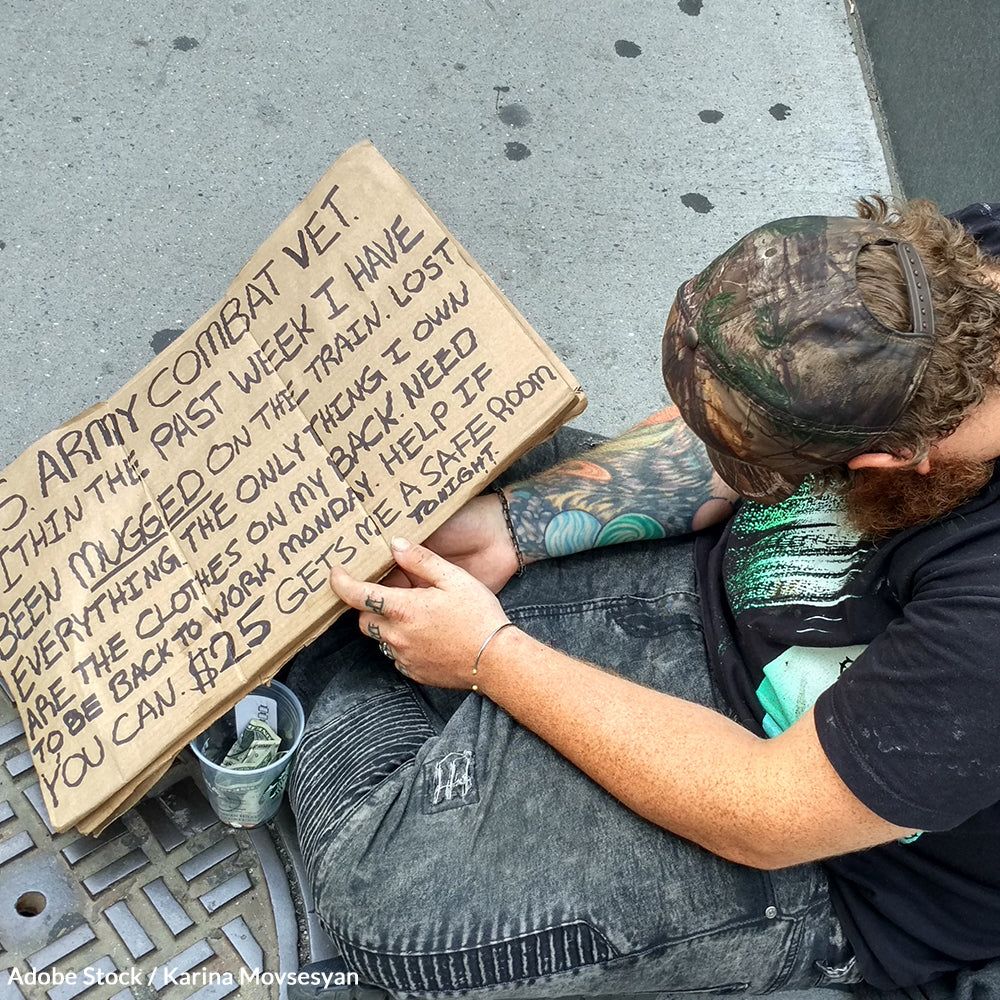 S. ARMY COMBAT VET.
ITHIN THE PAST WEEK I HAVE
BEEN MUGGED ON THE TRAIN. LOST
EVERYTHING. THE ONLY THING I OWN
ARE THE CLOTHES ON MY BACK. NEED
TO BE BACK TO WORK MONDAY. HELP IF
YOU CAN. $25 GETS ME A SAFE ROOM
TONIGHT.
Adobe Stock / Karina Movsesyan